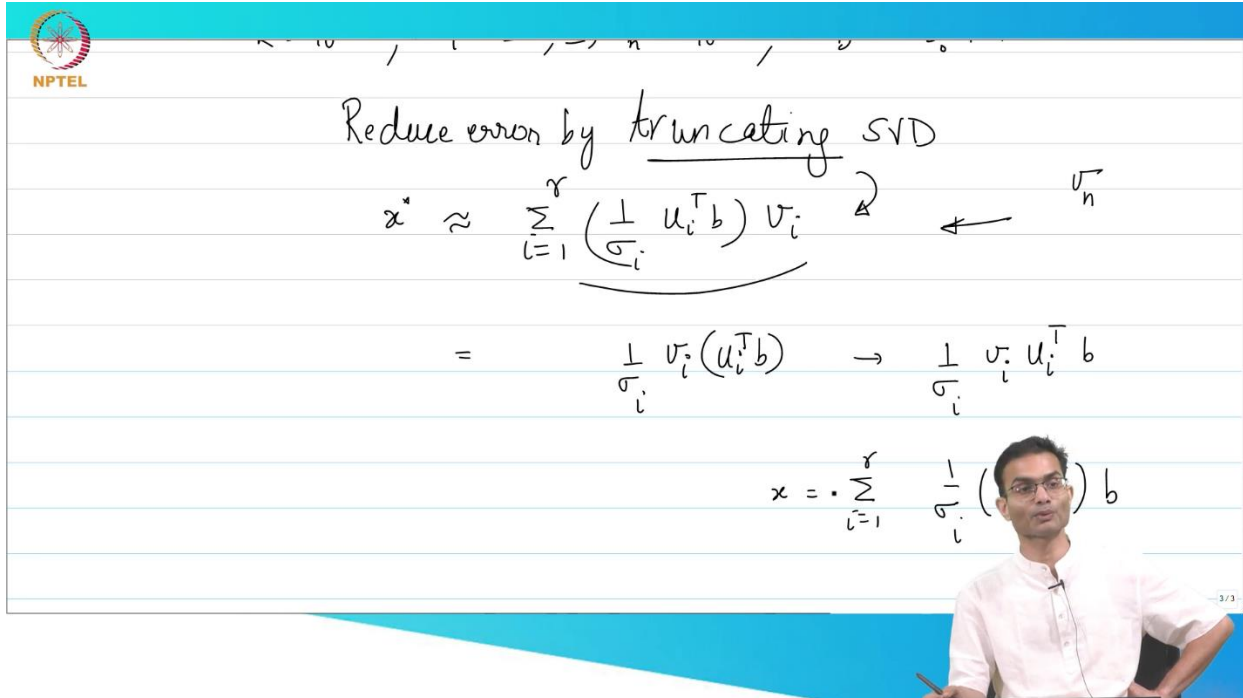 NPTEL
Reduce error by truncating SVD
x* ≈ Σ_{i=1}^{r} (1/σ_i u_i^T b) v_i ← σ_n
= 1/σ_i v_i (u_i^T b) → 1/σ_i v_i u_i^T b
x = · Σ_{i=1}^{r} 1/σ_i ( ) b
3/3